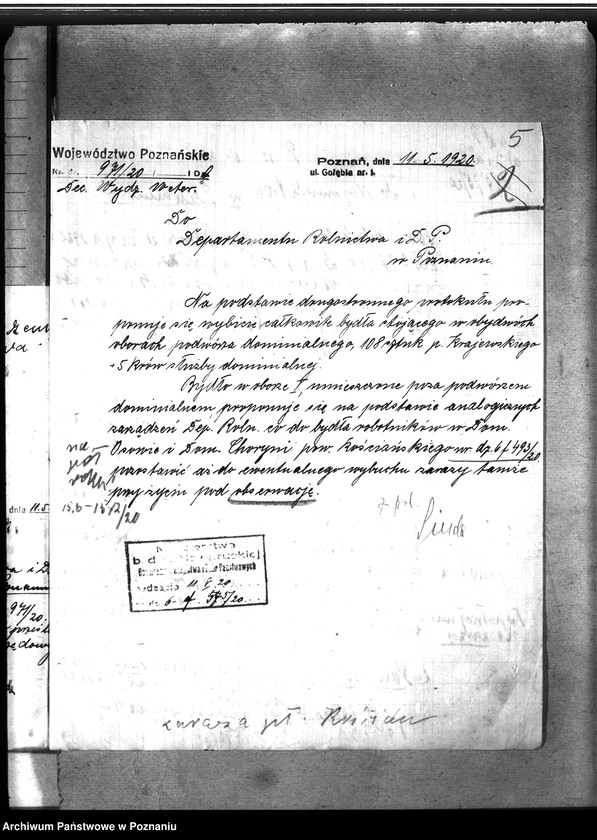 5
Województwo Poznańskie
Nr. 971/20 I D
Dec. Wydz. Weter.
Poznań, dnia 11.5.1920.
ul. Gołębia nr. 1.
Do
Departamentu Rolnictwa i D. P.
w Poznaniu.
Na podstawie drugostronnego protokułu pro-
ponuje się wybicie całkowite bydła stojącego w obydwóch
oborach podwórza dominialnego, 108 sztuk p. Krajewskiego
+ 5 krów służby dominialnej.
Bydło w oborze V, umieszczone poza podwórzem
dominialnem proponuje się na podstawie analogicznych
zarządzeń Dep. Roln. co do bydła robotników w Dom.
Osowie i Dom. Choryni pow. Kościańskiego nr. dz. 6 f 493/20
pozostawić aż do ewentualnego wybuchu zarazy tamże
przy życiu pod obserwację.
na
pół
roku
15.6-15.12/20
b. d
11 V 20
6 f 575/20
zaraza pł. Kościan
dnia 11.5.
971/20.